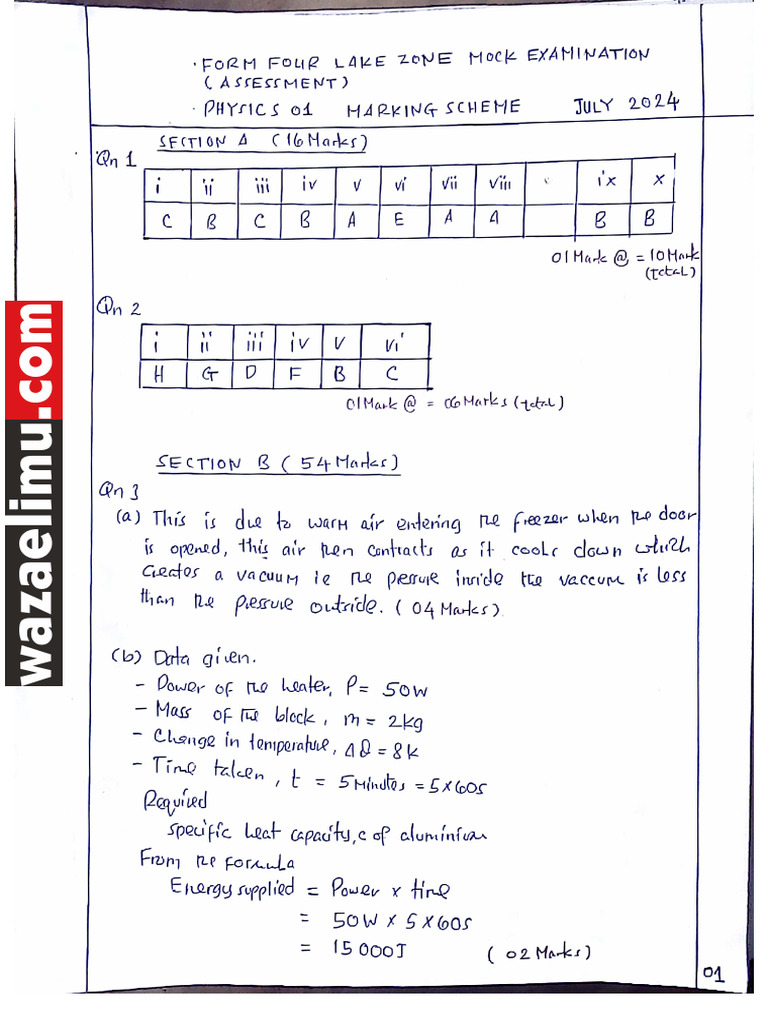 · FORM FOUR LAKE ZONE MOCK EXAMINATION
(ASSESSMENT)
· PHYSICS 01 MARKING SCHEME JULY 2024
SECTION A (16 Marks)
Qn 1
i ii iii iv v vi vii viii ix x
C B C B A E A A B B
01 Mark @ = 10 Mark
(Total)
Qn 2
i ii iii iv v vi
H G D F B C
01 Mark @ = 06 Marks (total)
SECTION B ( 54 Marks)
Qn 3
(a) This is due to warm air entering the freezer when the door
is opened, this air then contracts as it cools down which
creates a vacuum ie the pessure inside the vaccum is less
than the pressure outside. ( 04 Marks)
(b) Data given.
- Power of the heater, P = 50W
- Mass of the block, m = 2kg
- Change in temperature, Δθ = 8K
- Time taken, t = 5 Minutes = 5×60s
Required
specific heat capacity, c of aluminium
From the formula
Energy supplied = Power × time
= 50W × 5 × 60s
= 15000J ( 02 Marks)
01
wazaelimu.com